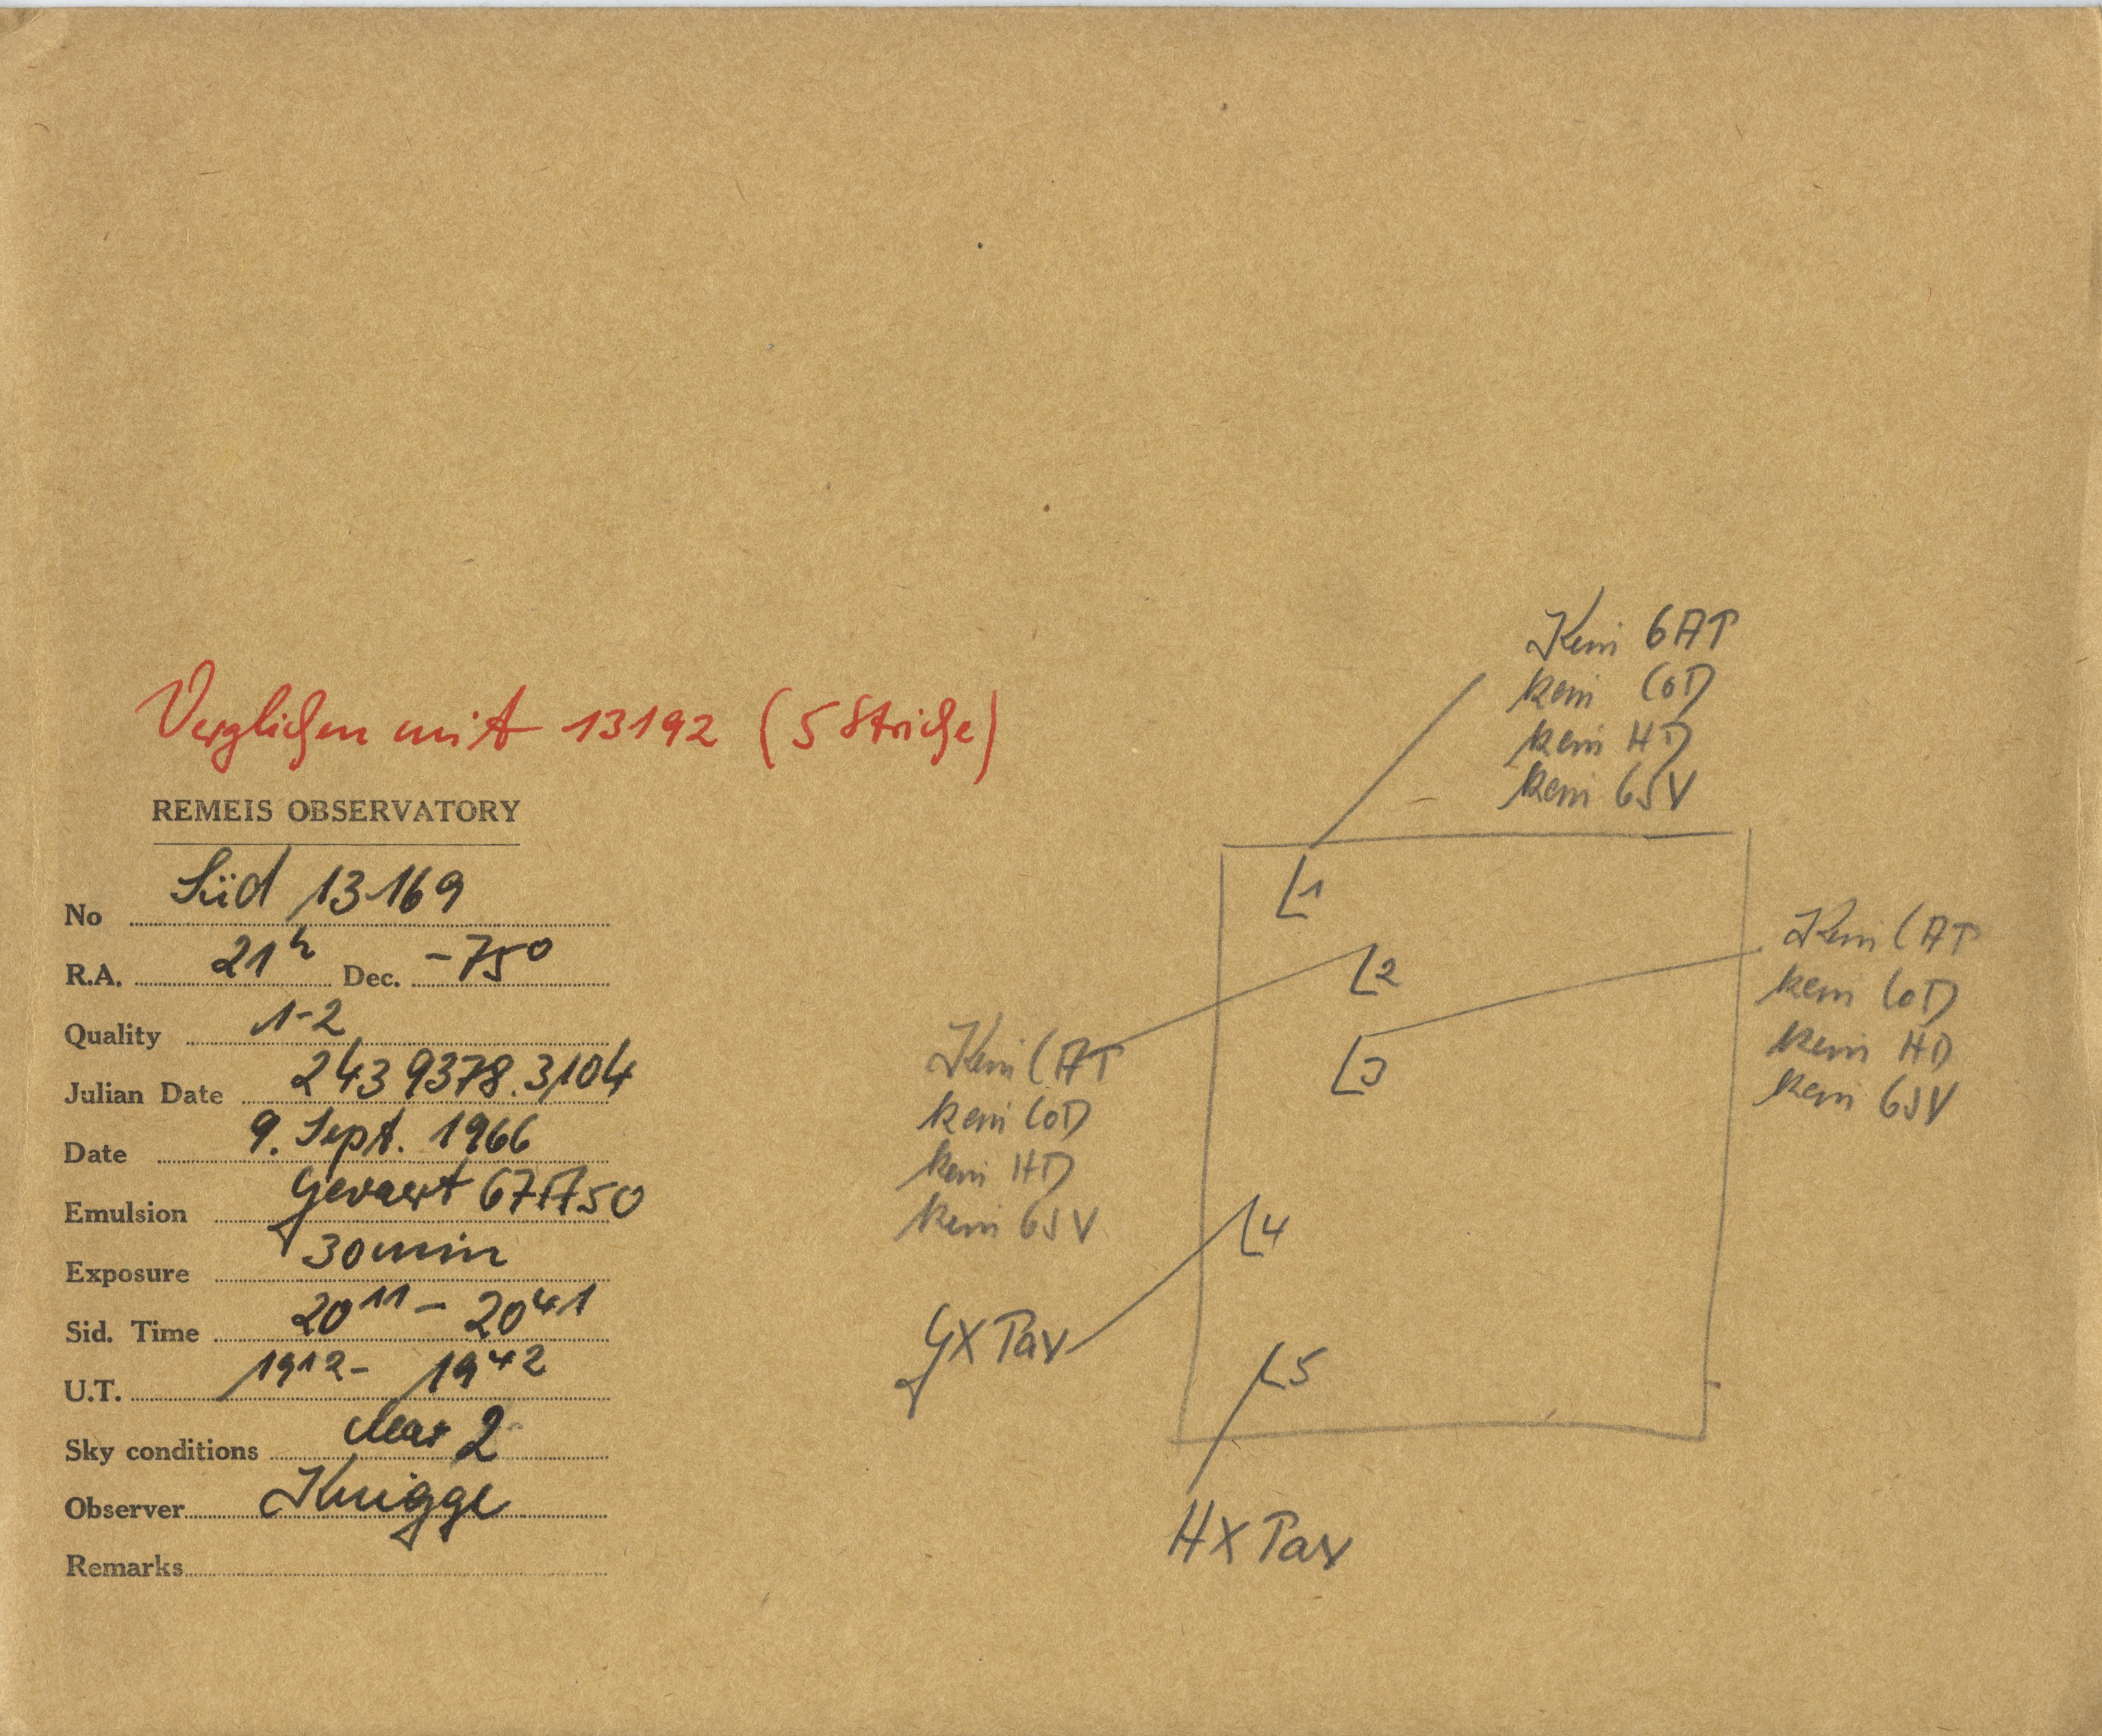 Verglichen mit 13192 (5 Striche)
REMEIS OBSERVATORY
No Süd 13169
R.A. 21h Dec. -75°
Quality 1-2
Julian Date 243 9378.3104
Date 9. Sept. 1966
Emulsion Gevaert 67A50
Exposure 30 min
Sid. Time 20 11 - 20 41
U.T. 19 12 - 19 42
Sky conditions clear 2
Observer Knigge
Remarks
Kein CAP
kein CoD
kein HD
kein GSV
1
2
3
4
5
Kein CAP
kein CoD
kein HD
kein GSV
Kein CAP
kein CoD
kein HD
kein GSV
GX Pav
HX Pav